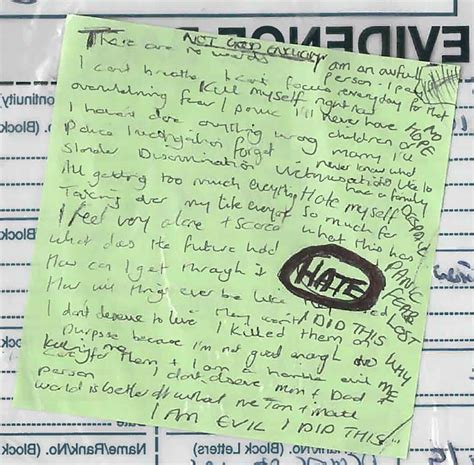 EVIDENCE
NOT GOOD ENOUGH
There are no words
I am an awful person - I pay every day for that
I can't breathe I can't focus
Kill myself right now
overwhelming fear / panic
I'll never have children or marry I'll never know what it's like to have a family
NO HOPE
I haven't done anything wrong
Police investigation forget
Slander Discrimination Victimisation
All getting too much everything
Hate myself so much for what this has
DESPAIR
PANIC
FEAR
LOST
Taking over my life everyone
I feel very alone + scared
What does the future hold
How can I get through it
How will things ever be like they used
HATE
I DID THIS
WHY ME
I don't deserve to live
I killed them on purpose because I'm not good enough to care for them + I am a horrible evil person
I don't deserve Mum + Dad
world is better off without me
I AM EVIL I DID THIS
ontinuity
No. (Block
(Block
Name/Rank/No. (Block Letters)